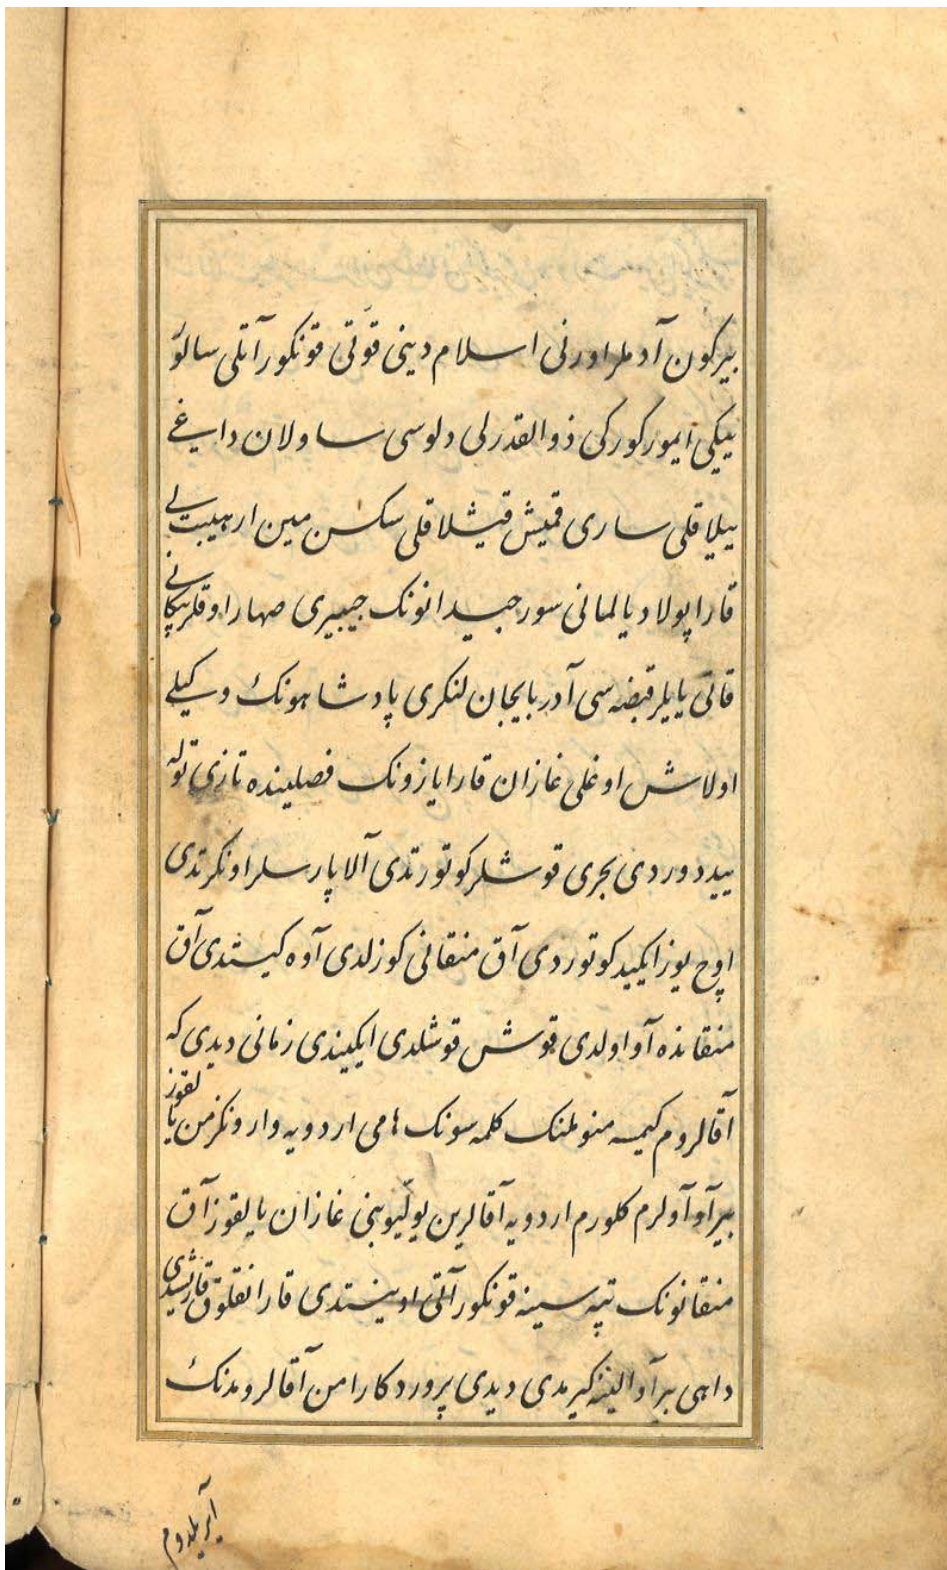 بیر کون آدملر اورنی اسلام دینی قوّتی قونکور آتلی سالور
بیکی ایمور کورکی ذوالقدرلی دلوسی ساولان داغی
ییلاقلی ساری قمیش قیشلاقلی سکسن مین ار هیبتلی
قارا پولاد یالمانی سور جیدانونک جیبیری صهار اوقلر پیکانی
قاتی یایلر قبضه سی آدربایجان لنکری پادشاهونک وکیلی
اولاش اوغلی غازان قارا یازونک فصلینده تازی توله
ییددوردی بحری قوشلر کوتورتدی آلا پارسلر اونکرتدی
اوچ یوز ایکید کوتوردی آق منقانی کوزلدی آوه کیتدی آق
منقانده آو اولدی قوش قوشلدی ایکیندی زمانی دیدی که
آقالروم کیمسه منوملنک کلمه سونک هامی اردویه وارونکز من یالقوز
بیر آو آولرم کلورم اردویه آقالرین یوللیوبنی غازان یالقوز آق
منقانونک تپه سینه قونکور آتی اوینتدی قارانقلوق قاریشدی
داهی بیر آو الینه کیرمدی دیدی پروردکارا من آقالرومدنک
آیریلدوم